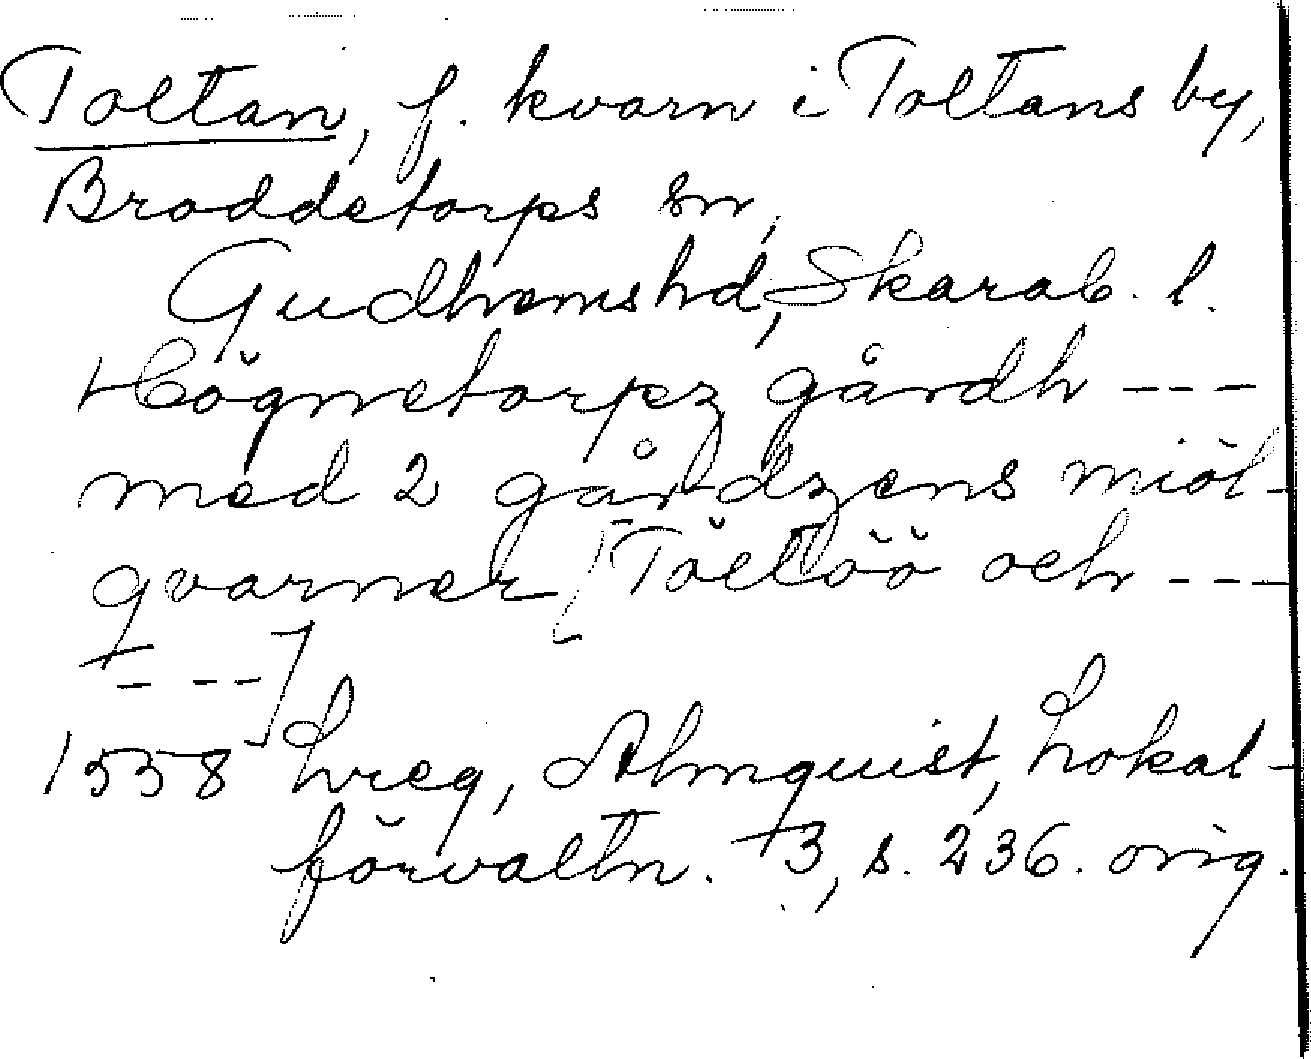 Toltan, f. kvarn i Toltans by,
Broddetorps sn,
Gudhems hd, Skarab. l.
Högnetorpz gårdh ---
med 2 gårdzens miöl-
qvarner [Töltöö och ---
- ---]
1558 hreg, Almquist, Lokal-
förvaltn. 3, s. 236. orig.